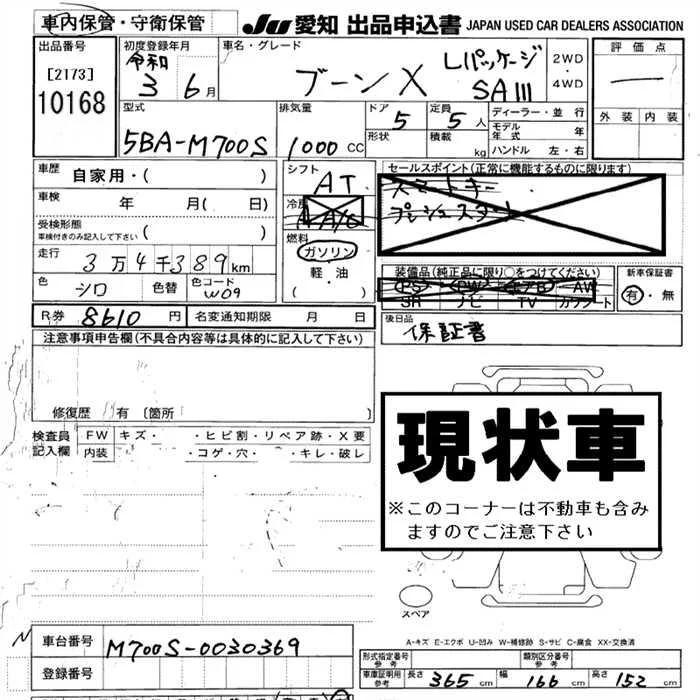 車内保管・守衛保管
JU 愛知 出品申込書 JAPAN USED CAR DEALERS ASSOCIATION
出品番号
[2173]
10168
初度登録年月
令和
3 6月
車名・グレード
ブーンX Lパッケージ
SAIII
2WD
・
4WD
評価点
外装 内装
型式
5BA-M700S
排気量
1000 CC
ドア 5
形状
定員 5人
積載 kg
ディーラー・並行
モデル年式 年
ハンドル 左・右
車歴
自家用・( )
車検 年 月( 日)
受検形態
車検付きのみ記入して下さい ( )
走行
3万4千389km
色 シロ
色替
色コード
W09
シフト
AT
冷房
燃料
ガソリン
軽・油
( )
セールスポイント(正常に機能するものに限ります)
スマートキー
プッシュスタート
装備品(純正品に限り○をつけてください)
PS PW エアB AW
SR ナビ TV カワシート
新車保証書
有・無
R券 8610 円
名変通知期限 月 日
後日品
保証書
注意事項申告欄(不具合内容等は具体的に記入して下さい)
修復歴 有(箇所 )
検査員
記入欄
FW キズ・ ・ヒビ割・リペア跡・X要
内装 ・コゲ・穴・ ・キレ・破レ
現状車
※このコーナーは不動車も含み
ますのでご注意下さい
スペア
A-キズ E-エクボ U-凹み W-補修跡 S-サビ C-腐食 XX-交換済
車台番号 M700S-0030369
登録番号
形式指定番号
参考
類別区分番号
参考
車庫証明用
参考
長さ 365 cm 幅 166 cm 高さ 152 cm